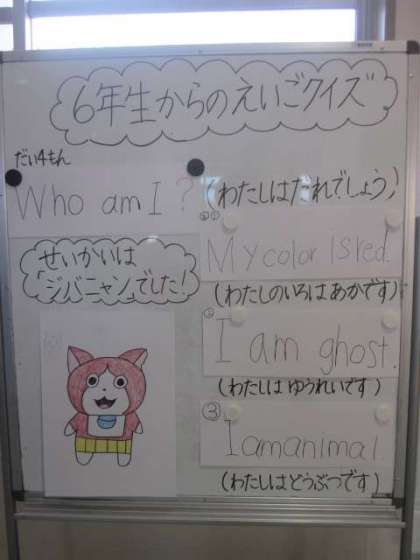 6年生からのえいごクイズ
だい4もん
Who am I ?
(わたしはだれでしょう)
せいかいは
「ジバニャン」でした!
①
My color is red.
(わたしのいろはあかです)
②
I am ghost.
(わたしはゆうれいです)
③
I am animal.
(わたしはどうぶつです)